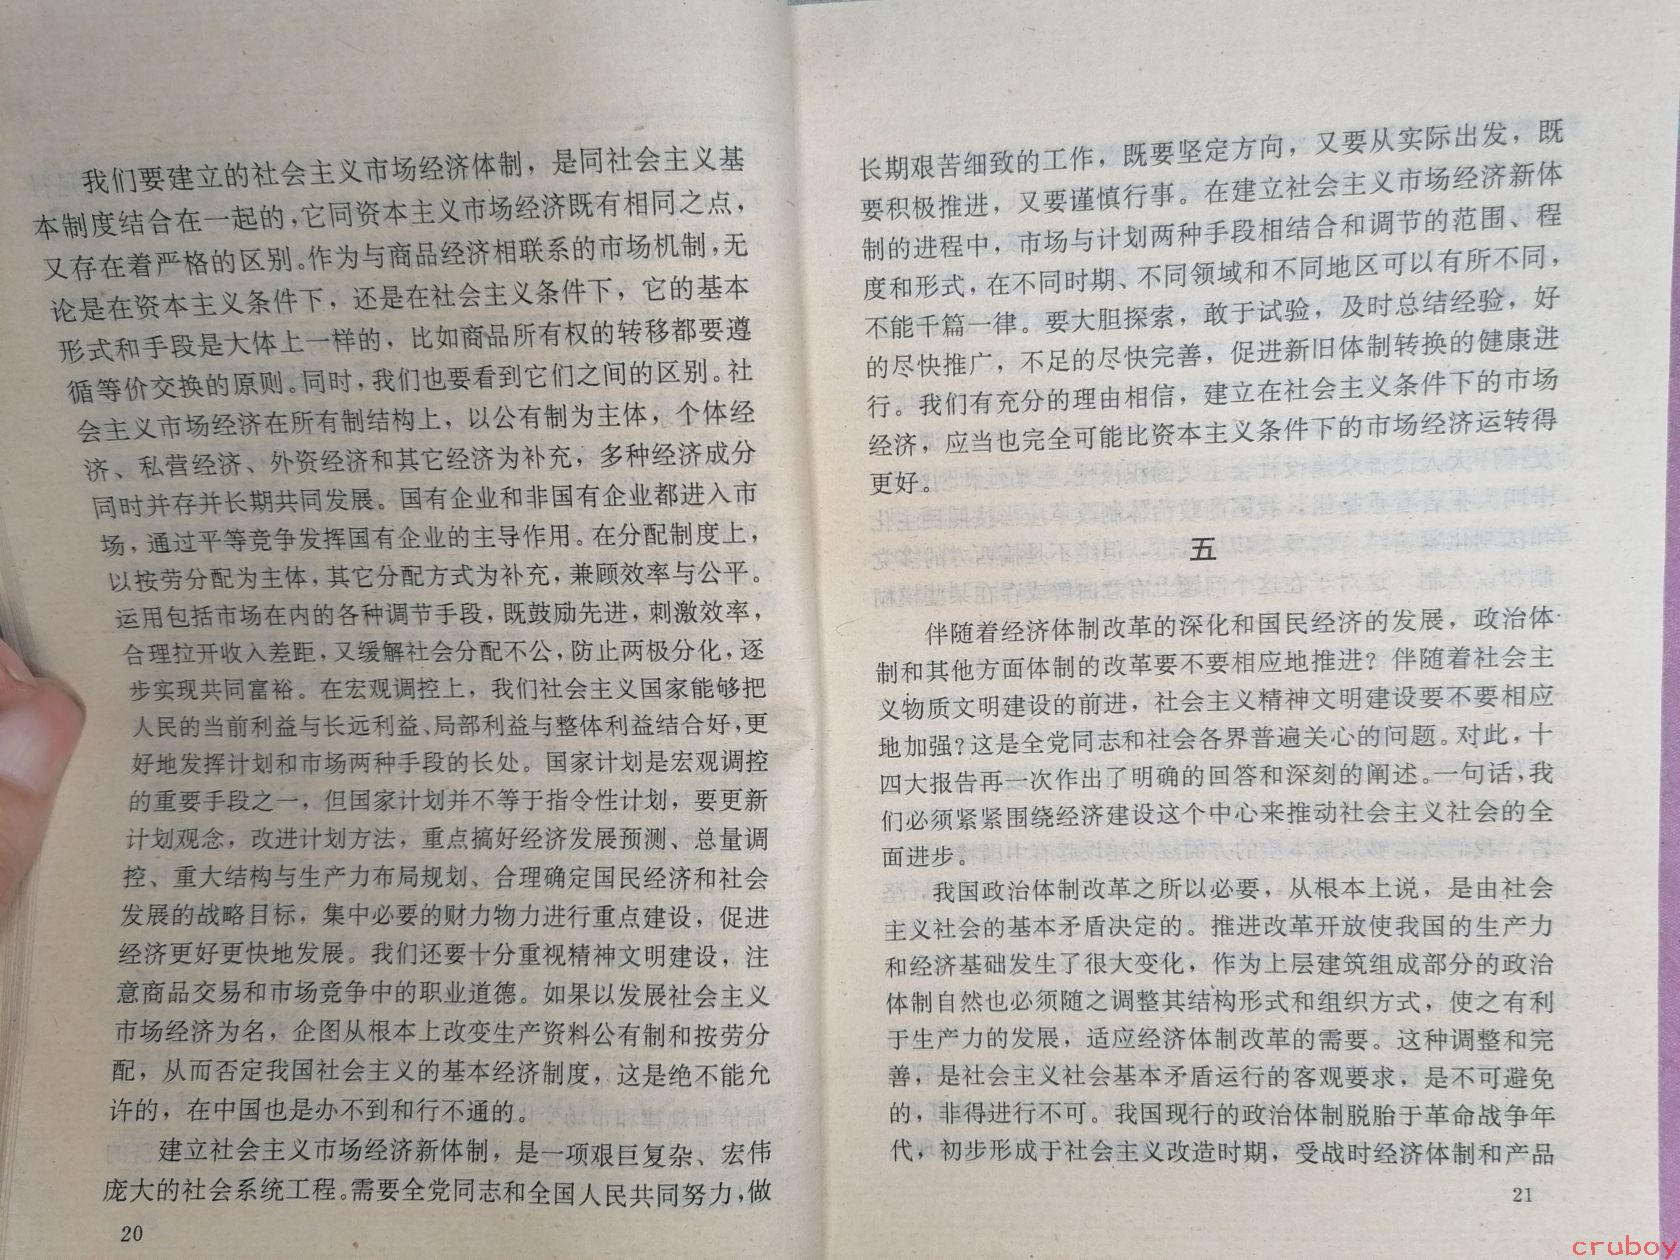 我们要建立的社会主义市场经济体制，是同社会主义基
本制度结合在一起的，它同资本主义市场经济既有相同之点，
又存在着严格的区别。作为与商品经济相联系的市场机制，无
论是在资本主义条件下，还是在社会主义条件下，它的基本
形式和手段是大体上一样的，比如商品所有权的转移都要遵
循等价交换的原则。同时，我们也要看到它们之间的区别。社
会主义市场经济在所有制结构上，以公有制为主体，个体经
济、私营经济、外资经济和其它经济为补充，多种经济成分
同时并存并长期共同发展。国有企业和非国有企业都进入市
场，通过平等竞争发挥国有企业的主导作用。在分配制度上，
以按劳分配为主体，其它分配方式为补充，兼顾效率与公平。
运用包括市场在内的各种调节手段，既鼓励先进，刺激效率，
合理拉开收入差距，又缓解社会分配不公，防止两极分化，逐
步实现共同富裕。在宏观调控上，我们社会主义国家能够把
人民的当前利益与长远利益、局部利益与整体利益结合好，更
好地发挥计划和市场两种手段的长处。国家计划是宏观调控
的重要手段之一，但国家计划并不等于指令性计划，要更新
计划观念，改进计划方法，重点搞好经济发展预测、总量调
控、重大结构与生产力布局规划、合理确定国民经济和社会
发展的战略目标，集中必要的财力物力进行重点建设，促进
经济更好更快地发展。我们还要十分重视精神文明建设，注
意商品交易和市场竞争中的职业道德。如果以发展社会主义
市场经济为名，企图从根本上改变生产资料公有制和按劳分
配，从而否定我国社会主义的基本经济制度，这是绝不能允
许的，在中国也是办不到和行不通的。
建立社会主义市场经济新体制，是一项艰巨复杂、宏伟
庞大的社会系统工程。需要全党同志和全国人民共同努力，做
20
长期艰苦细致的工作，既要坚定方向，又要从实际出发，既
要积极推进，又要谨慎行事。在建立社会主义市场经济新体
制的进程中，市场与计划两种手段相结合和调节的范围、程
度和形式，在不同时期、不同领域和不同地区可以有所不同，
不能千篇一律。要大胆探索，敢于试验，及时总结经验，好
的尽快推广，不足的尽快完善，促进新旧体制转换的健康进
行。我们有充分的理由相信，建立在社会主义条件下的市场
经济，应当也完全可能比资本主义条件下的市场经济运转得
更好。
五
伴随着经济体制改革的深化和国民经济的发展，政治体
制和其他方面体制的改革要不要相应地推进？伴随着社会主
义物质文明建设的前进，社会主义精神文明建设要不要相应
地加强？这是全党同志和社会各界普遍关心的问题。对此，十
四大报告再一次作出了明确的回答和深刻的阐述。一句话，我
们必须紧紧围绕经济建设这个中心来推动社会主义社会的全
面进步。
我国政治体制改革之所以必要，从根本上说，是由社会
主义社会的基本矛盾决定的。推进改革开放使我国的生产力
和经济基础发生了很大变化，作为上层建筑组成部分的政治
体制自然也必须随之调整其结构形式和组织方式，使之有利
于生产力的发展，适应经济体制改革的需要。这种调整和完
善，是社会主义社会基本矛盾运行的客观要求，是不可避免
的，非得进行不可。我国现行的政治体制脱胎于革命战争年
代，初步形成于社会主义改造时期，受战时经济体制和产品
21
cruboy